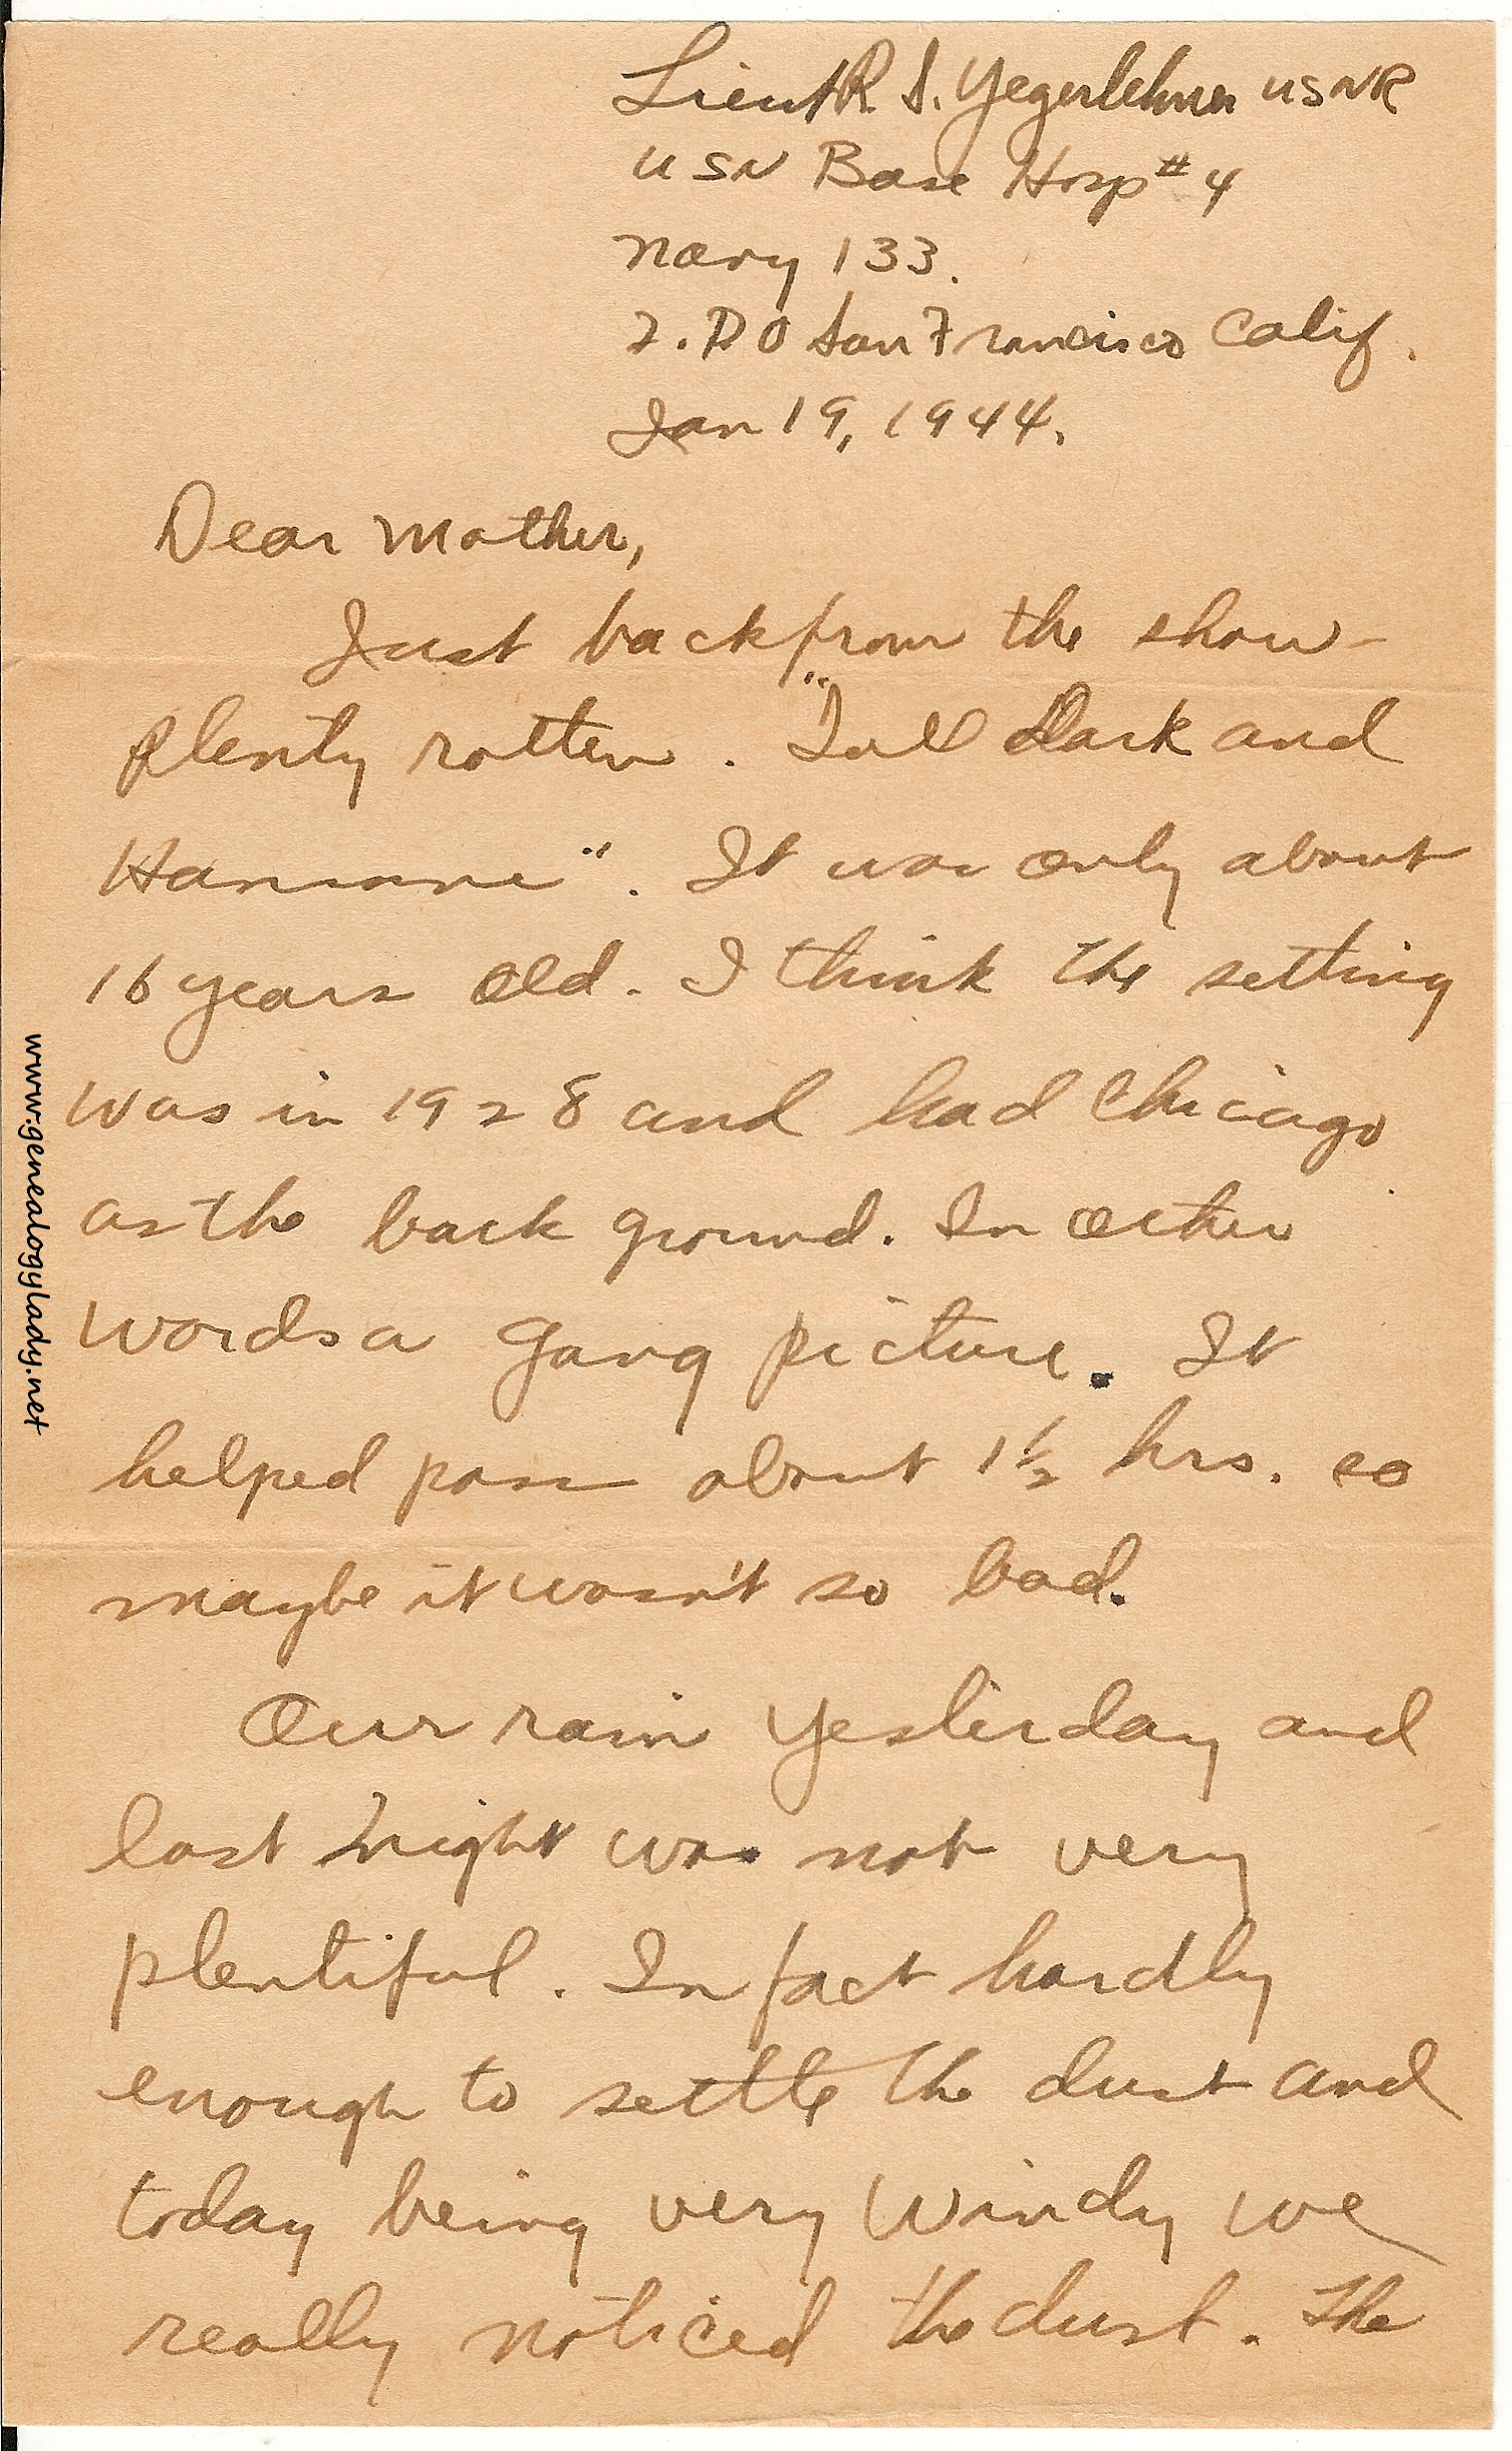 Lieut R. S. Yegerlehner USNR
USN Base Hosp #4
Navy 133.
F. P O San Francisco Calif.
Jan 19, 1944.
Dear Mother,
Just back from the show-
plenty rotten. "Tall Dark and
". It was only about
16 years old. I think the setting
was in 1928 and had Chicago
as the back ground. In other
words a gang picture. It
helped pass about 1½ hrs. so
maybe it wasn't so bad.
Our rain yesterday and
last night was not very
plentiful. In fact hardly
enough to settle the dust and
today being very windy we
really noticed the dust. The
www.genealogylady.net